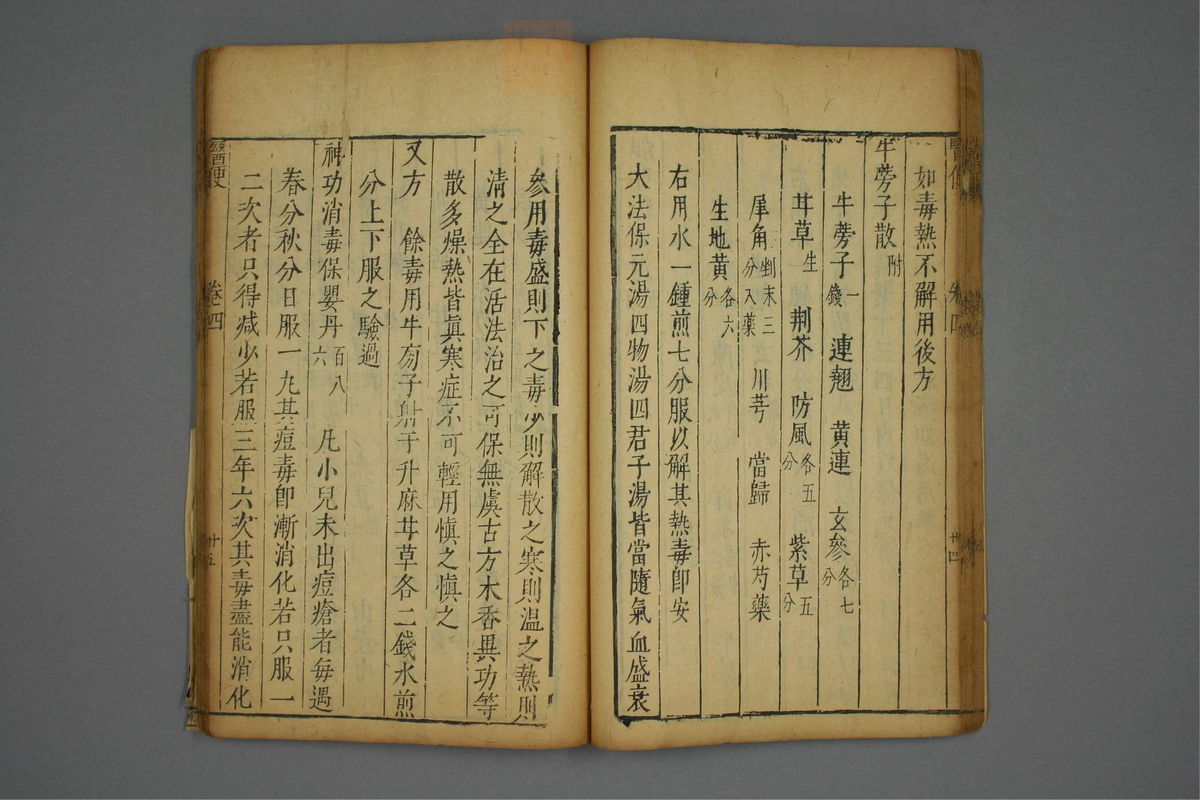 醫便
卷四
廿四
如毒熱不解用後方
牛蒡子散附
牛蒡子一錢 連翹 黃連 玄參各七分
甘草生 荆芥 防風各五分 紫草五分
犀角剉末三分入藥 川芎 當歸 赤芍藥
生地黄各六分
右用水一鍾煎七分服以解其熱毒卽安
大法保元湯四物湯四君子湯皆當隨氣血盛衰
參用毒盛則下之毒少則解散之寒則温之熱則
淸之全在活法治之可保無虞古方木香異功等
散多燥熱皆眞寒症不可輕用慎之慎之
又方 餘毒用牛蒡子射干升麻甘草各二錢水煎
分上下服之驗過
神功消毒保嬰丹百八六 凡小兒未出痘瘡者每遇
春分秋分日服一丸其痘毒卽漸消化若只服一
二次者只得减少若服三年六次其毒盡能消化
醫便
卷四
廿五